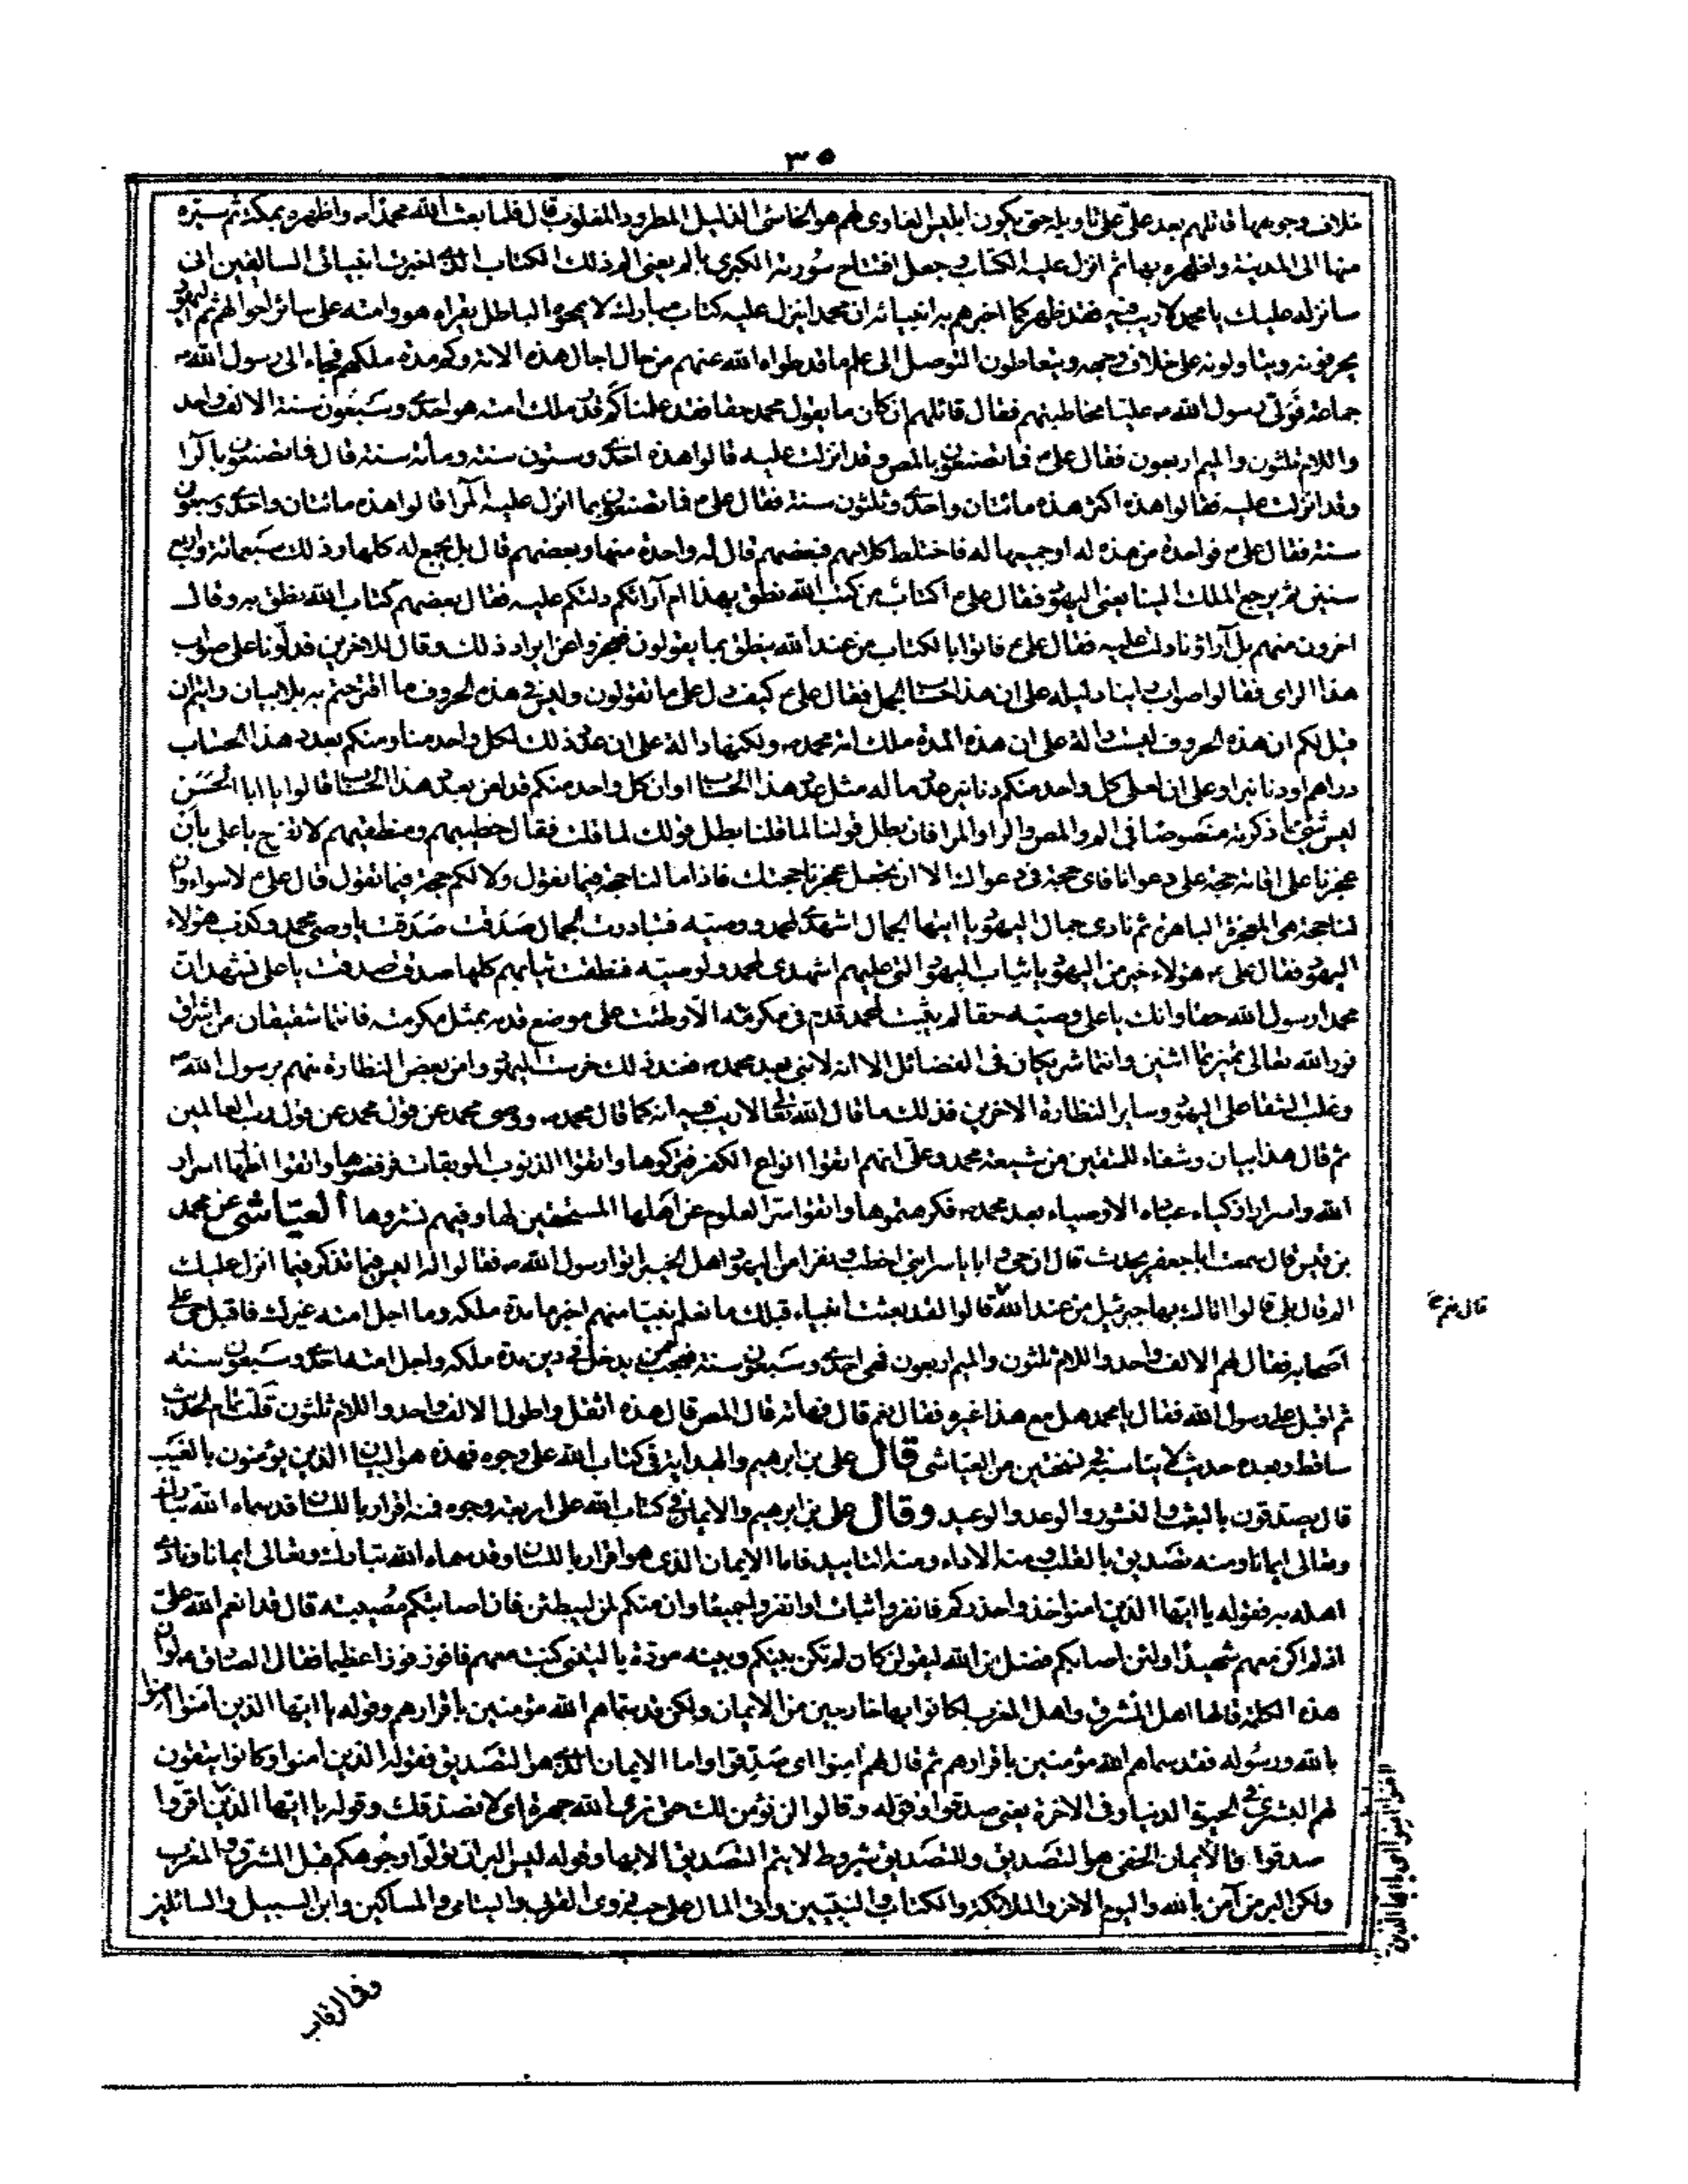 ٣٥
خلاف وجوهها قاتلهم بعد علىّ على تاويله حتى يكون ابليس الغاوى لهم هو الخاسئ الذليل المطرود المغلوب قال فلما بعث الله محمدا ص واظهره بمكة ثم سيّره
منها الى المدينة واظهره بها ثم انزل عليه الكتاب وجعل افتتاح سورته الكبرى بالم يعنى الم ذلك الكتاب الذى اخبرت انبيائى السالفين انى
سانزله عليك يا محمد لا ريب فيه فقد ظهر كما اخبرهم به انبيائهم ان محمدا ينزل عليه كتاب مبارك لا يمحوه الباطل يقرأه هو وامته على سائر احوالهم ثم اليهود
يحرفونه ويتاولونه على خلاف وجهه ويتعاطون التوصل الى علم ما قد طواه الله عنهم من حال اجال هذه الامة وكم مدة ملكهم فجاء الى رسول الله ص
جماعة فولّى رسول الله ص عليّا مخاطبتهم فقال قائلهم ان كان ما يقول محمد حقا فقد علمنا كم قدر ملك امته هو احدى وسبعون سنة الالف واحد
واللام ثلثون والميم اربعون فقال على ع فما تصنعون بالمص وقد انزلت عليه قالوا هذه احدى وستون سنة ومأة سنة قال فما تصنعون بالرا
وقد انزلت عليه فقالوا هذه اكثر هذه مائتان واحدى وثلثون سنة فقال على ع فما تصنعون بما انزل عليه المرا قالوا هذه مائتان واحدى وسبعون
سنة فقال على ع فواحدة من هذه له او جميعها له فاختلط كلامهم فبعضهم قال له واحدة منها وبعضهم قال بل يجمع له كلها وذلك سبعمائة واربع
سنين ثم يرجع الملك الينا يعنى اليهود فقال على ع اكتاب من كتب الله نطق بهذا ام آراؤكم دلتكم عليه فقال بعضهم كتاب الله نطق به وقال
اخرون منهم بل آراؤنا دلت عليه فقال على ع فاتوا بالكتاب من عند الله ينطق بما يقولون فعجزوا عن ايراد ذلك وقال للاخرين فدلّونا على صواب
هذا الراى فقالوا صواب راينا دليله على ان هذا حساب الجمل فقال على ع كيف دل على ما تقولون وليس فى هذه الحروف ما اقترحتم به بلا بيان ارايتم ان
قيل لكم ان هذه الحروف ليست دالة على ان هذه المدة ملك امة محمد ص ولكنها دالة على ان عند ذلك لكل واحد منا ومنكم بعدد هذا الحساب
دراهم او دنانير او على ان لعلى كل واحد منكم دنانير عدد ماله مثل عدد هذا الحساب او ان كل واحد منكم قد لعن بعدد هذا الحساب قالوا يا ابا الحسن
ليس شئ مما ذكرته منصوصا فى الم والمص والرا والمرا فان بطل قولنا لما قلنا بطل قولك لما قلت فقال خطيبهم ومنطقيهم لا تفرح يا على بان
عجزنا على اقامة حجة على دعوانا فاى حجة فى دعواك الا ان تجعل عجزنا حجتك فاذا ما لنا حجة فيما نقول ولا لكم حجة فيما تقول قال على ع لا سواء وان
لنا حجة هى المعجزة الباهرة ثم نادى جمال اليهود يا ايتها الجمال اشهدى لمحمد ووصيه فتبادرت الجمال صدقت صدقت يا وصى محمد وكذب هؤلاء
اليهود فقال على ع هؤلاء خير من اليهود يا ثياب اليهود التى عليهم اشهدى لمحمد ولوصيه فنطقت ثيابهم كلها صدقت صدقت يا على نشهد ان
محمدا رسول الله حقا وانك يا على وصيه حقا لم يثبت لمحمد قدم فى مكرمة الا وطئت على موضع قدمه بمثل مكرمته فانتما شقيقان من اشراق
نور الله تعالى تميزتما اثنين وانتما شريكان فى الفضائل الا انه لا نبى بعد محمد ص فعند ذلك خرست اليهود وامن بعض النظارة منهم برسول الله ص
وغلب الشقا على اليهود وساير النظارة الاخرين فذلك ما قال الله تعالى لا ريب فيه انه كما قال محمد ص ووصى محمد عن قول محمد عن قول رب العالمين
ثم قال هذا بيان وشفاء للمتقين من شيعة محمد وعلى انهم اتقوا انواع الكفر فتركوها واتقوا الذنوب الموبقات فرفضوها واتقوا اظهار اسرار
الله واسرار ازكياء عباده الاوصياء بعد محمد ص فكتموها واتقوا ستر العلوم عن اهلها المستحقين لها وفيهم نشروها العيّاشى عن محمد
بن قيس قال سمعت ابا جعفر يحدث قال ان حى وابا ياسر ابنى اخطب ونفرا من اليهود واهل الخيبر اتوا رسول الله ص فقالوا له اليس فيما تذكر فيما انزل عليك
الم قال بلى قالوا اتاك بها جبرئيل من عند الله قالوا لقد بعثت انبياء قبلك ما نعلم نبيّا منهم اخبر ما مدة ملكه وما اجل امته غيرك فاقبل حى على
قال نعم خ
اصحابه فقال لهم الالف واحد واللام ثلثون والميم اربعون فهى احدى وسبعون سنة فعجب ممن يدخل فى دين مدة ملكه واجل امته احدى وسبعون سنة
ثم اقبل على رسول الله فقال يا محمد هل مع هذا غيره فقال نعم قال فهاته قال المص قال هذه اثقل واطول الالف واحد واللام ثلثون قلت تمام الحديث
ساقط وبعده حديث لا يناسبه فى نسختين من العياشى قال على بن ابرهيم والهداية فى كتاب الله على وجوه فهذه هو البيان الذين يؤمنون بالغيب
قال يصدقون بالبعث والنشور والوعد والوعيد وقال على بن ابرهيم والايمان فى كتاب الله على اربعة وجوه فمنه اقرار باللسان قد سماه الله تبارك
وتعالى ايمانا ومنه تصديق بالقلب ومنه الاداء ومنه التاييد فاما الايمان الذى هو اقرار باللسان وقد سماه الله تبارك وتعالى ايمانا ونادى
اهله به فقوله يا ايها الذين امنوا خذوا حذركم فانفروا ثبات او انفروا جميعا وان منكم لمن ليبطئن فان اصابتكم مصيبة قال قد انعم الله على
اذ لم اكن معهم شهيدا ولئن اصابكم فضل من الله ليقولن كان لم تكن بينكم وبينه مودة يا ليتنى كنت معهم فافوز فوزا عظيما فقال الصادق ع لو ان
هذه الكلمة قالها اهل المشرق واهل المغرب لكانوا بها خارجين من الايمان ولكن قد سماهم الله مؤمنين باقرارهم وقوله يا ايها الذين آمنوا آمنوا
بالله ورسوله فقد سماهم الله مؤمنين باقرارهم ثم قال لهم آمنوا اى صدّقوا واما الايمان الذى هو التصديق فقوله الذين امنوا وكانوا يتقون
لهم البشرى فى الحيوة الدنيا وفى الاخرة يعنى صدقوا وقوله وقالوا لن نؤمن لك حتى نرى الله جهرة اى لا نصدقك وقوله يا ايها الذين اقرّوا
صدقوا فالايمان الخفى هو التصديق وللتصديق شروط لا يتم التصديق الا بها وقوله ليس البر ان تولّوا وجوهكم قبل المشرق والمغرب
ولكن البر من آمن بالله واليوم الاخر والملائكة والكتاب والنبيين واتى المال على حبه ذوى القربى واليتامى والمساكين وابن السبيل والسائلين
وفى الرقاب